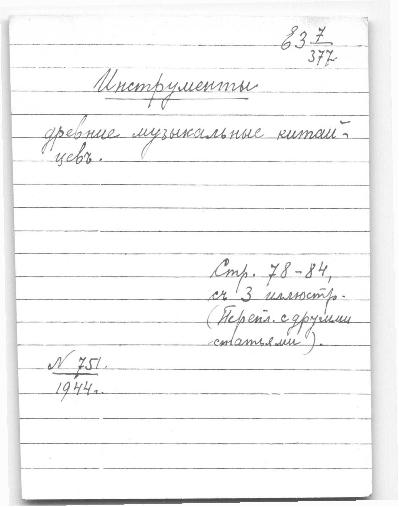 ЕЗ 7/377
Инструменты
древние музыкальные китай-
цевъ.
Стр. 78-84,
съ 3 иллюстр.
(Перепл. с другими
статьями).
N 751.
1944 г.